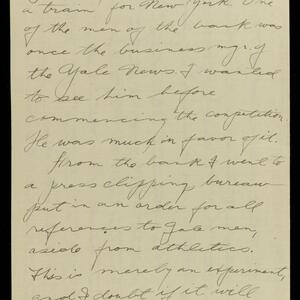 a train for New York. One
of the men of the bank was
once the business mgr. of
the Yale News. I wanted
to see him before
commencing the competition.
He was much in favor of it.
From the bank I went to
a press clipping bureau
put in an order for all
references to Yale men,
aside from athletics.
This is merely an experiment,
and I doubt if it will